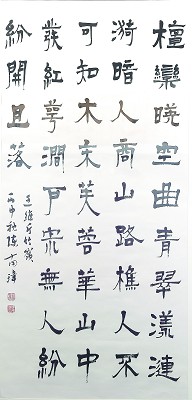 檀欒暎空曲青翠漾漣
漪暗入商山路樵人不
可知木末芙蓉華山中
發紅萼澗戶寂無人紛
紛開且落
王維斤竹嶺
丙申秋